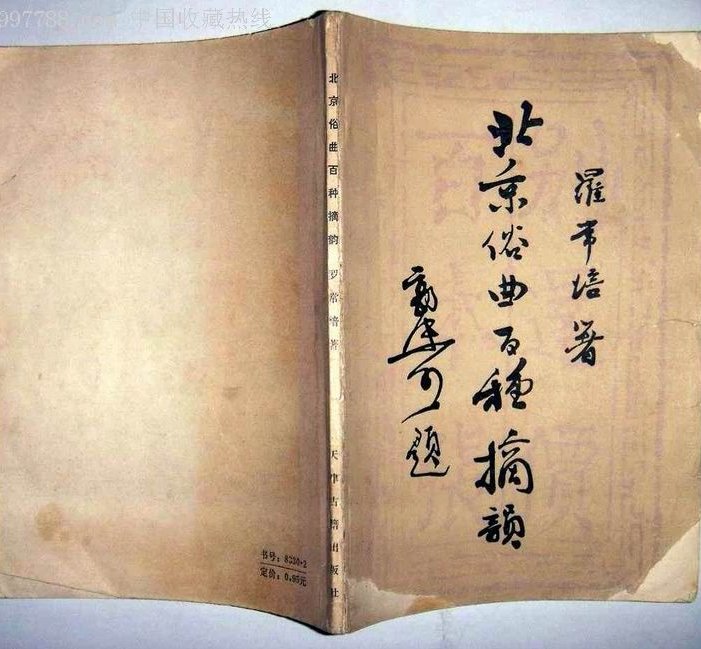 997788.com 中国收藏热线
羅常培著
北京俗曲百種摘韻
题
北京俗曲百种摘韵 罗常培著
天津古籍出版社
书号：8330·2
定价：0.95元